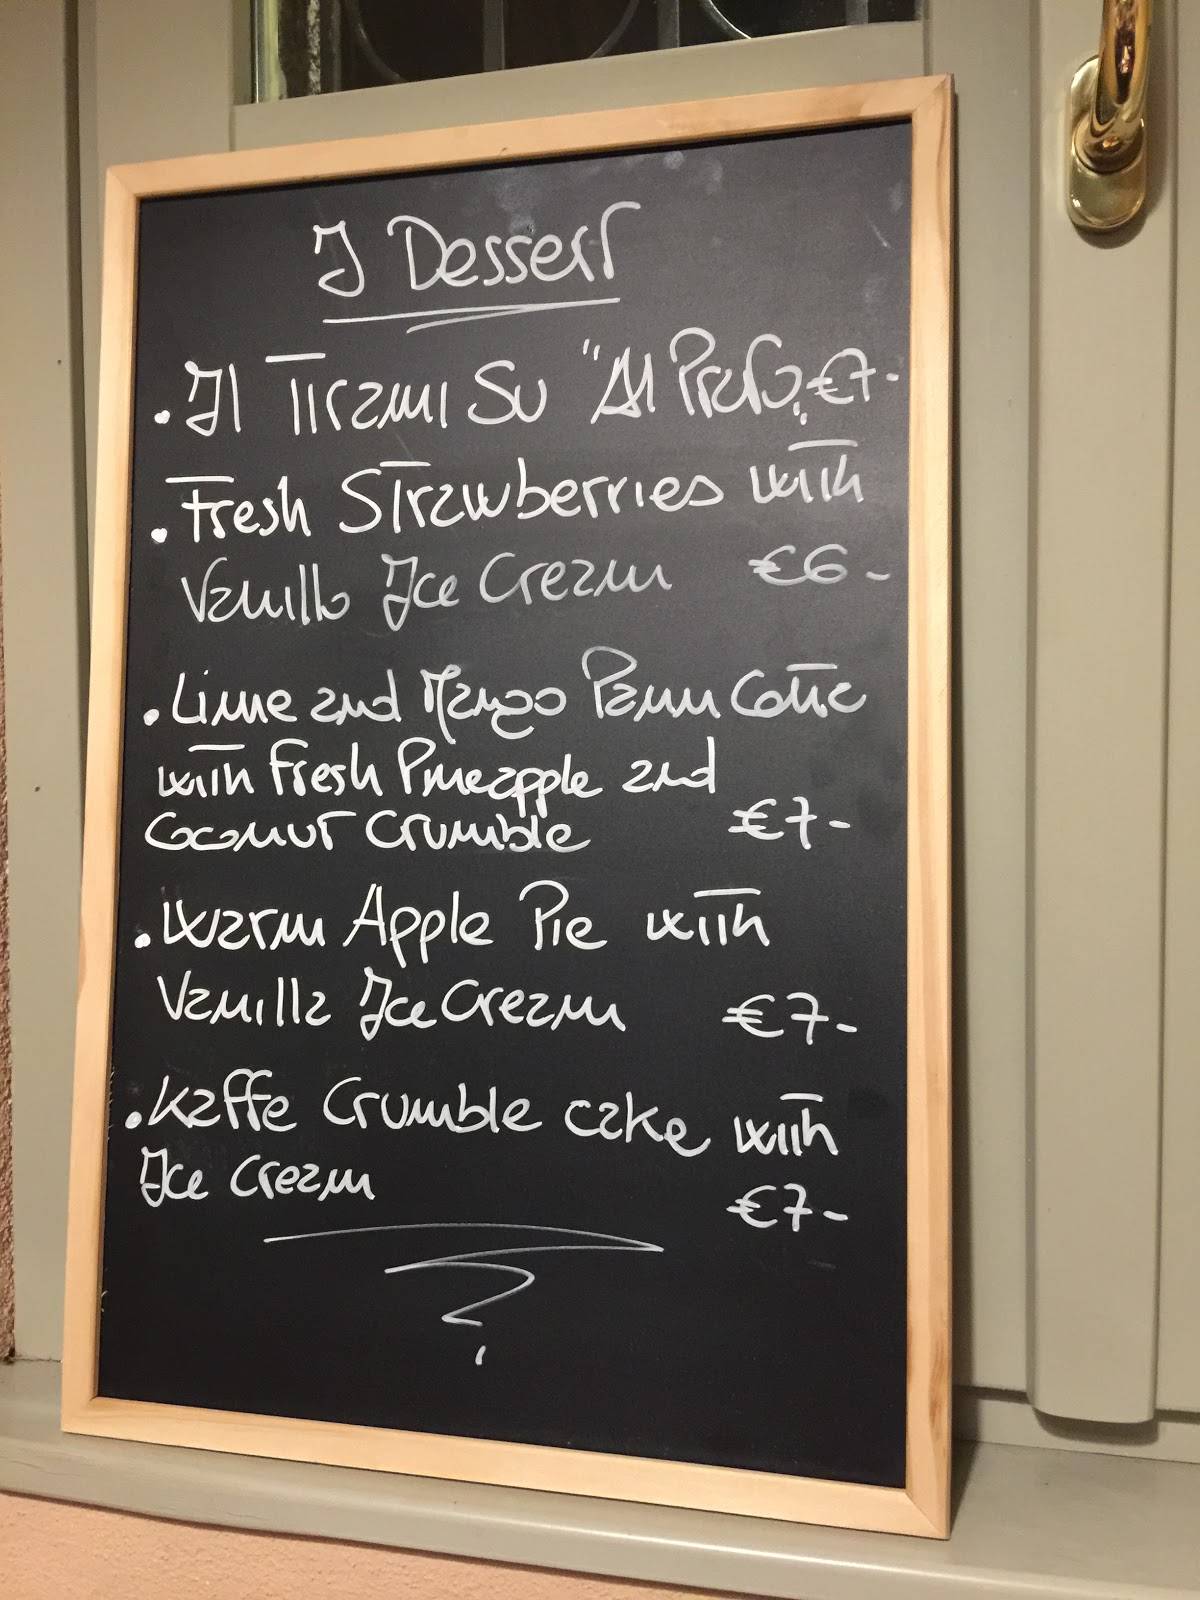 I Dessert
• Il Tirami Su "Al Prato" €7-
• Fresh Strawberries with
Vanilla Ice Cream €6-
• Lime and Mango Pann Cotta
with Fresh Pineapple and
Coconut Crumble €7-
• Warm Apple Pie with
Vanilla Ice Cream €7-
• Kaffe Crumble cake with
Ice Cream €7-